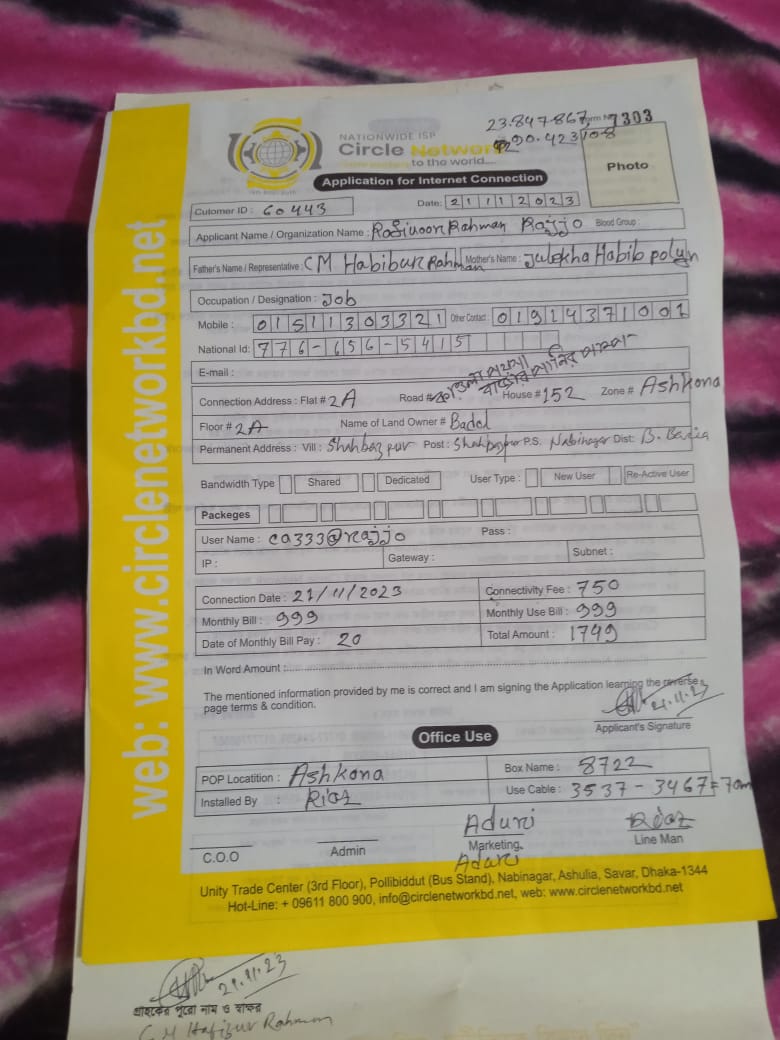 23.847867 Form No 7303
90.423108
NATIONWIDE ISP
Circle Network
to the world....
Photo
Application for Internet Connection
Cutomer ID : 60443 Date: 21112023
Applicant Name / Organization Name : Rafinoor Rahman Rajjo Blood Group :
Father's Name / Representative : CM Habibur Rahman Mother's Name : Julekha Habib polyn
Occupation / Designation : Job
Mobile : 01511303321 Other Contact : 01914371001
National Id: 776-656-5415
E-mail :
Connection Address : Flat # 2A Road # House # 152 Zone # Ashkona
Floor # 2A Name of Land Owner # Badol
Permanent Address : Vill : Shahbazpur Post : Shahbazpur P.S. Nabinagar Dist: B. Baria
Bandwidth Type Shared Dedicated User Type : New User Re-Active User
Packeges
User Name : ca333@rajjo Pass :
IP : Gateway : Subnet :
Connection Date : 21/11/2023 Connectivity Fee : 750
Monthly Bill : 999 Monthly Use Bill : 999
Date of Monthly Bill Pay : 20 Total Amount : 1749
In Word Amount :
The mentioned information provided by me is correct and I am signing the Application learning the reverse
page terms & condition.
21.11.23
Applicant's Signature
Office Use
POP Locatition : Ashkona Box Name : 8722
Installed By : Riaz Use Cable : 3537 - 3467 = 70m
Aduri Riaz
C.O.O Admin Marketing Line Man
Aduri
Unity Trade Center (3rd Floor), Pollibiddut (Bus Stand), Nabinagar, Ashulia, Savar, Dhaka-1344
Hot-Line: + 09611 800 900, info@circlenetworkbd.net, web: www.circlenetworkbd.net
web: www.circlenetworkbd.net
21.11.23
গ্রাহকের পুরো নাম ও স্বাক্ষর
C M Hafizur Rahman